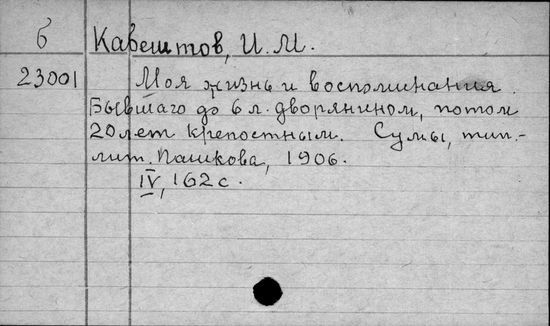 б Кавештов, И. М.
23001 Моя жизнь и воспоминания.
Бывшаго до 6 л. дворянином, потом
20 лет крепостным. Сумы, тип.-
лит. Пашкова, 1906.
IV, 162 с.